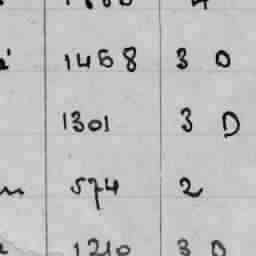 1458 3 D
1301 3 D
574 2
1210 3 D